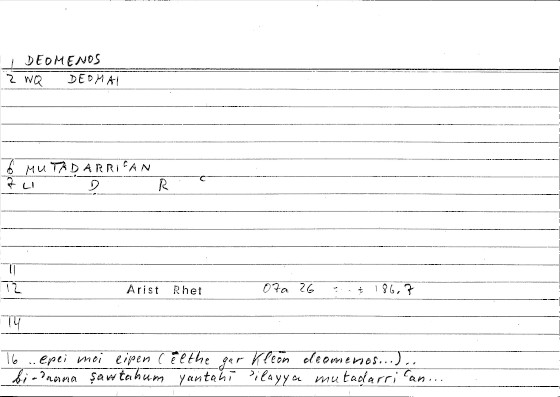 1 DEOMENOS
2 WQ DEOMAI
6 MUTADARRIᶜAN
7 LI D R ᶜ
11
12 Arist Rhet 07a 26 186.7
14
16 ..epei moi eipen (ēlthe gar Kleōn deomenos...)..
bi-ʾanna ṣawtahum yantahī ʾilayya mutaḍarriᶜan...